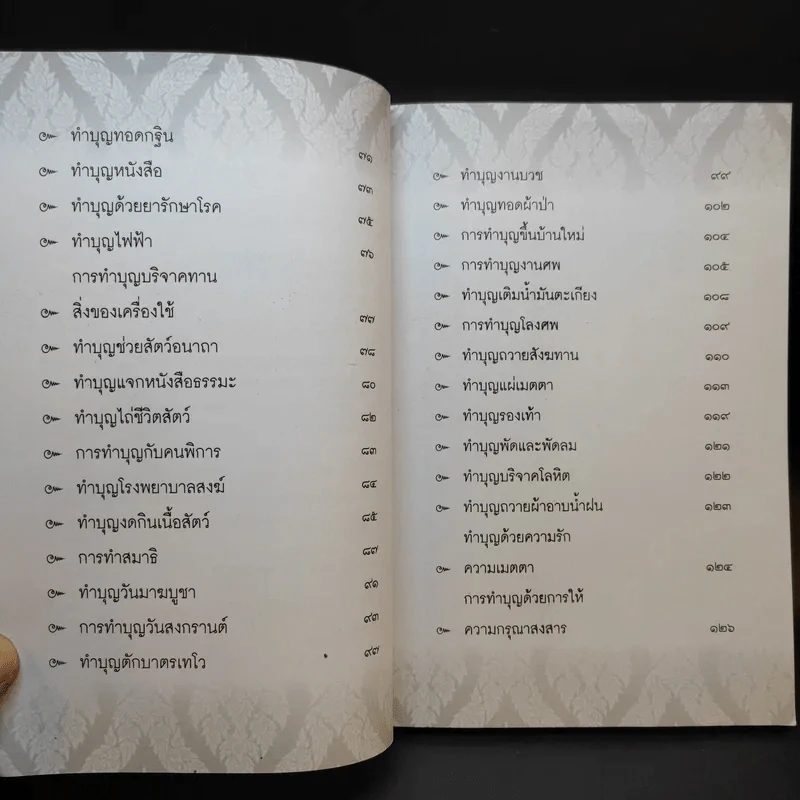 ทำบุญทอดกฐิน ๗๑
ทำบุญหนังสือ ๗๓
ทำบุญด้วยยารักษาโรค ๗๕
ทำบุญไฟฟ้า ๗๖
การทำบุญบริจาคทาน
สิ่งของเครื่องใช้ ๗๗
ทำบุญช่วยสัตว์อนาถา ๗๘
ทำบุญแจกหนังสือธรรมะ ๘๐
ทำบุญไถ่ชีวิตสัตว์ ๘๒
การทำบุญกับคนพิการ ๘๓
ทำบุญโรงพยาบาลสงฆ์ ๘๔
ทำบุญงดกินเนื้อสัตว์ ๘๕
การทำสมาธิ ๘๗
ทำบุญวันมาฆบูชา ๙๑
การทำบุญวันสงกรานต์ ๙๓
ทำบุญตักบาตรเทโว ๙๗
ทำบุญงานบวช ๙๙
ทำบุญทอดผ้าป่า ๑๐๒
การทำบุญขึ้นบ้านใหม่ ๑๐๔
การทำบุญงานศพ ๑๐๕
ทำบุญเติมน้ำมันตะเกียง ๑๐๘
การทำบุญโลงศพ ๑๐๙
ทำบุญถวายสังฆทาน ๑๑๐
ทำบุญแผ่เมตตา ๑๑๓
ทำบุญรองเท้า ๑๑๙
ทำบุญพัดและพัดลม ๑๒๑
ทำบุญบริจาคโลหิต ๑๒๒
ทำบุญถวายผ้าอาบน้ำฝน ๑๒๓
ทำบุญด้วยความรัก
ความเมตตา ๑๒๔
การทำบุญด้วยการให้
ความกรุณาสงสาร ๑๒๖